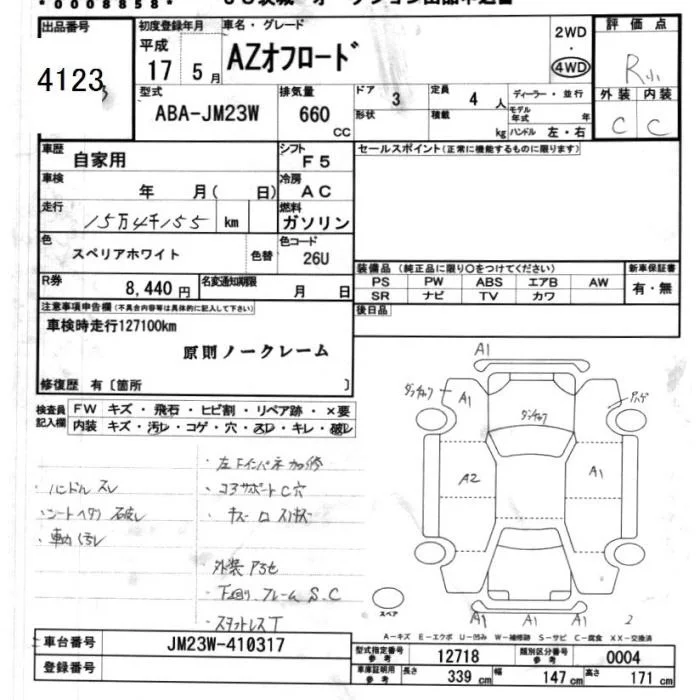 0008858
出品番号
4123
初度登録年月
平成
17 5月
車名・グレード
AZオフロード
2WD
・
4WD
評価点
R
型式
ABA-JM23W
排気量
660
CC
ドア
3
形状
定員
4 人
積載
kg
ディーラー・並行
モデル
年式 年
ハンドル 左・右
外装 内装
C C
車歴
自家用
シフト
F5
車検
年 月( 日)
冷房
AC
走行
15万4千155 km
燃料
ガソリン
色
スペリアホワイト
色替
色コード
26U
R券
8,440円
名変通知期限
月 日
セールスポイント(正常に機能するものに限ります)
装備品(純正品に限り○をつけてください)
新車保証書
PS PW ABS エアB AW
SR ナビ TV カワ
有・無
後日品
注意事項申告欄(不具合内容等は具体的に記入して下さい)
車検時走行127100km
原則ノークレーム
修復歴 有〔箇所 〕
検査員
記入欄
FW キズ・飛石・ヒビ割・リペア跡・×要
内装 キズ・汚レ・コゲ・穴・スレ・キレ・破レ
・ハンドル スレ
・シートヘタリ 破レ
・車内 汚レ
・コアサポートC穴
外装
下回り、フレーム S.C
・スタットレスT
A1
A1
A2
A1
A1 A1 A1
2
スペア
A-キズ E-エクボ U-凹み W-補修跡 S-サビ C-腐食 XX-交換済
車台番号
JM23W-410317
登録番号
型式指定番号
参考
12718
類別区分番号
参考
0004
車庫証明用
参考
長さ 339cm 幅 147cm 高さ 171cm